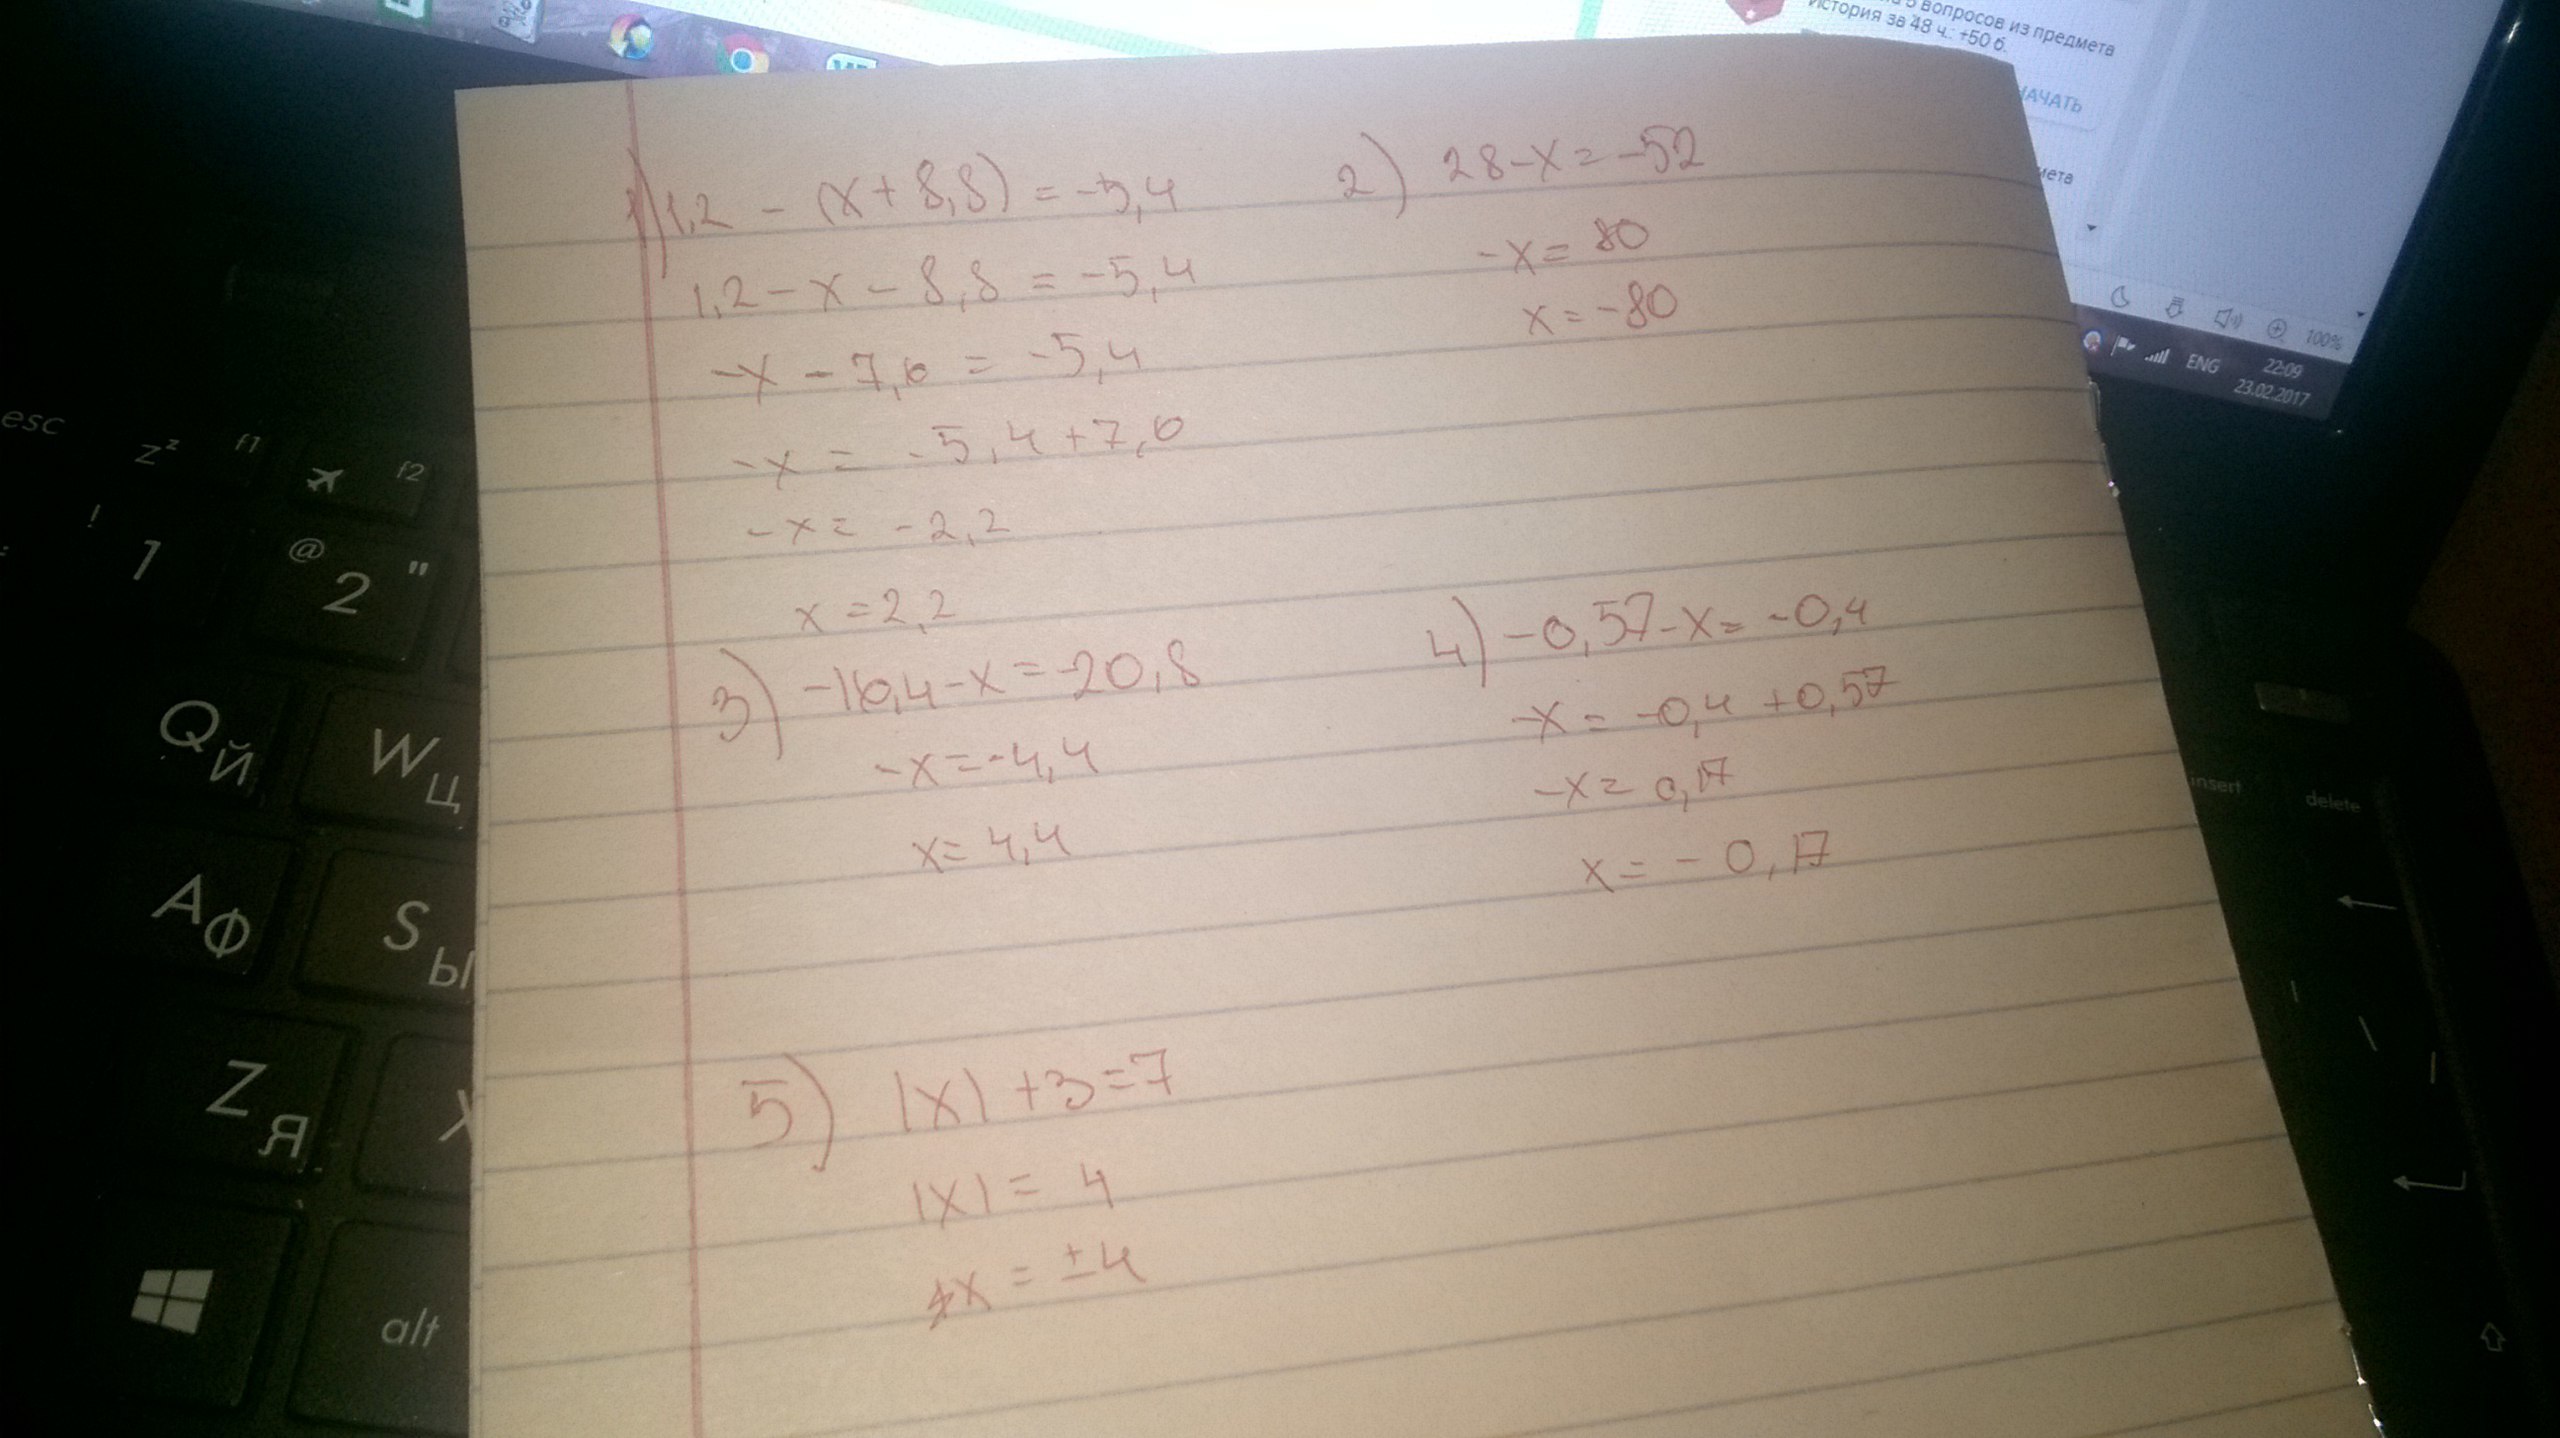 5 вопросов из предмета
История за 48 ч.: +50 б.
НАЧАТЬ
мета
100%
ENG
22:09
23.02.2017
1) 1,2 - (x + 8,8) = -5,4
1,2 - x - 8,8 = -5,4
-x - 7,6 = -5,4
-x = -5,4 + 7,6
-x = -2,2
x = 2,2
2) 28 - x = -52
-x = 80
x = -80
3) -16,4 - x = -20,8
-x = -4,4
x = 4,4
4) -0,57 - x = -0,4
-x = -0,4 + 0,57
-x = 0,17
x = -0,17
5) |x| + 3 = 7
|x| = 4
x = ±4
esc
zᶻ f1
f2
! 1
@ 2 "
Q Й
W Ц
A Ф
S Ы
Z Я
X
alt
insert
delete